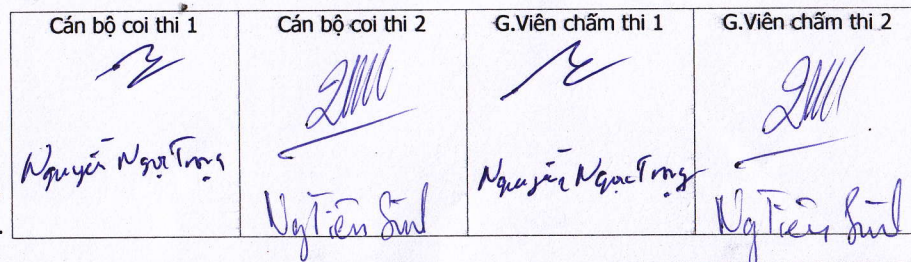 Cán bộ coi thi 1
Cán bộ coi thi 2
G.Viên chấm thi 1
G.Viên chấm thi 2
Nguyễn Ngọc Trọng
Ng Tiến
Nguyễn Ngọc Trọng
Ng Tiến